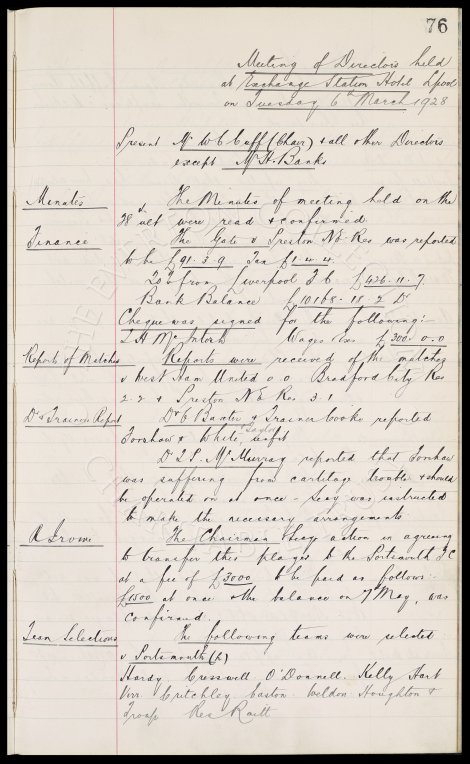 76
Meeting of Directors held
at Exchange Station Hotel Lpool
on Tuesday 6th March 1928
Present Mr W C Cuff (Chair) & all other Directors
except Mr H. Banks
Minutes
The Minutes of meeting held on the
28 ult were read & confirmed
Finance
The Gate v Preston N.E. Res was reported
to be £91. 3. 9 Tax £1. 4. 4.
from Liverpool F.C. £426. 11. 7
Bank Balance £10168. 18. 2 Dr
Cheque was signed for the following:-
McIntosh Wages £300 0. 0
Report of Matches
Reports were received of the matches
v West Ham United 0. 0 Bradford City Res
2. 2 & Preston N E Res 3. 1
Dr & Trainers Report
Dr C Baxter & Trainer Cooke reported
Forshaw & White, Taylor unfit
Dr McMurray reported that Forshaw
was suffering from cartilage trouble & should
be operated on at once - Secy was instructed
to make the necessary arrangements.
R Irvine
The Chairman & Secys action in agreeing
to transfer this player to the Portsmouth F C
at a fee of £3000 to be paid as follows:-
£1500 at once & the balance on 7 May, was
confirmed.
Team Selections
The following teams were selected
v Portsmouth (h)
Hardy Cresswell O'Donnell. Kelly Hart
Virr Critchley Easton Weldon Houghton &
Troup Res Raitt